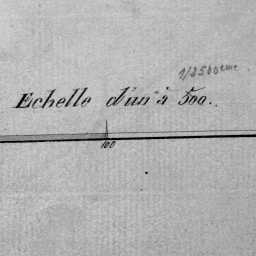 1/2500ème.
Echelle d'un à 500.
100